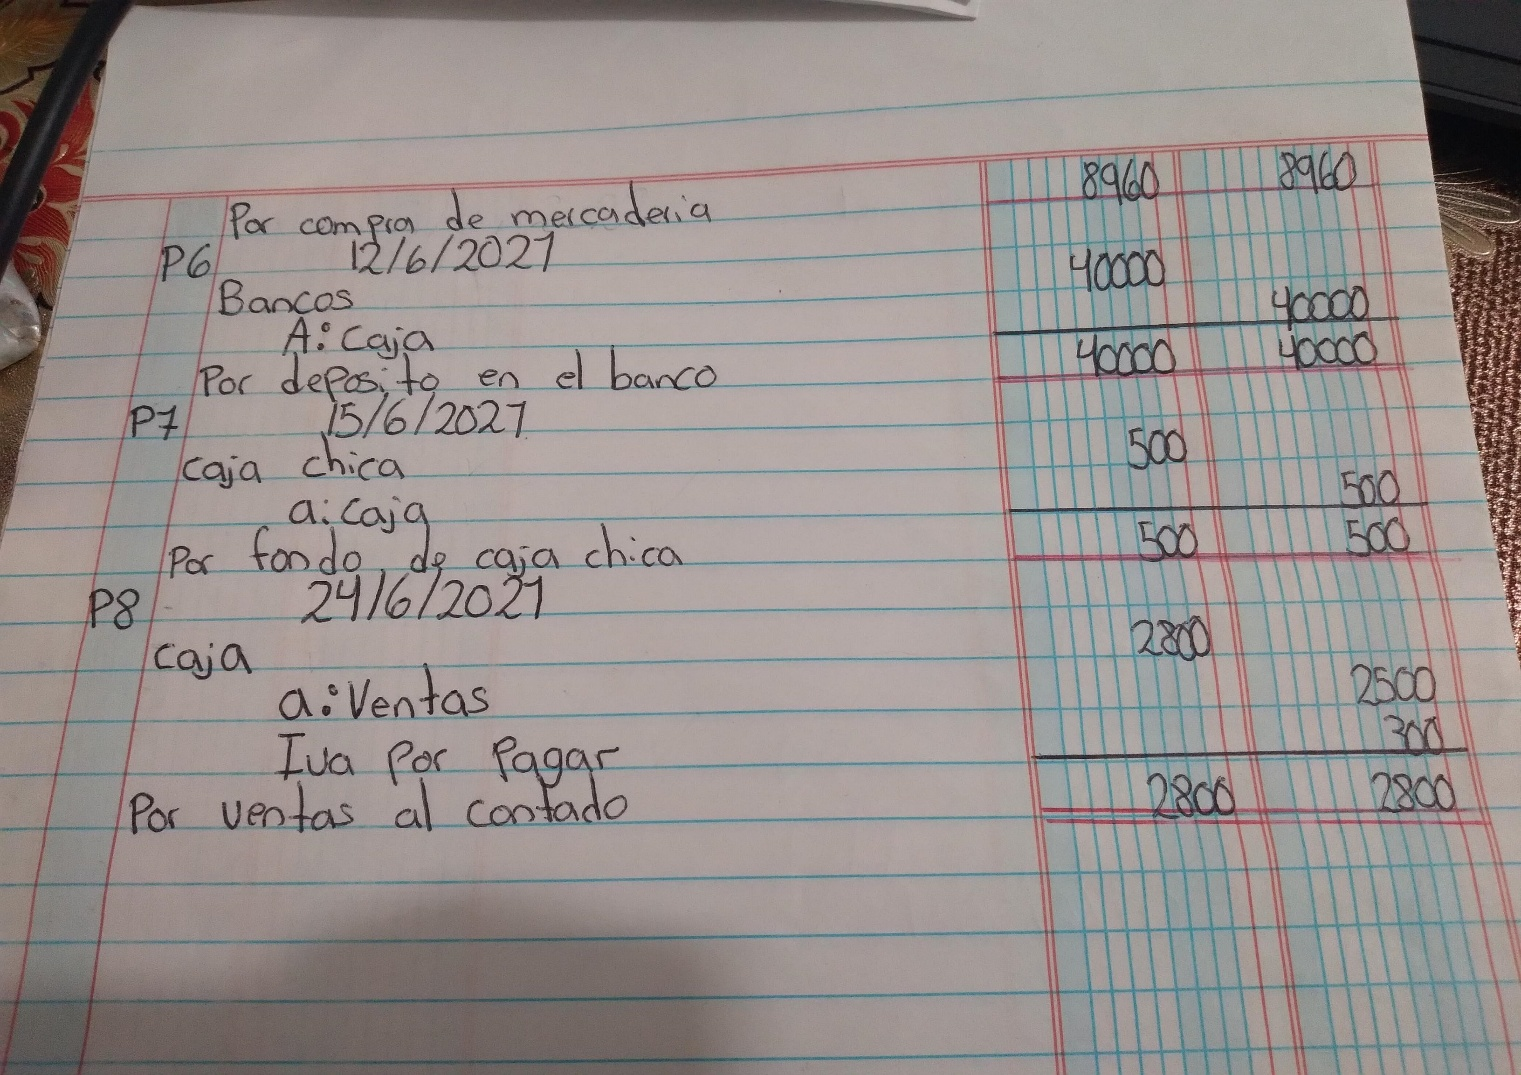 8960 8960
Por compra de mercaderia
P6 12/6/2021
Bancos 40000
A: Caja 40000
Por deposito en el banco 40000 40000
P7 15/6/2021
caja chica 500
a: Caja 500
Por fondo de caja chica 500 500
P8 24/6/2021
caja 2800
a: Ventas 2500
Iva Por Pagar 300
Por ventas al contado 2800 2800